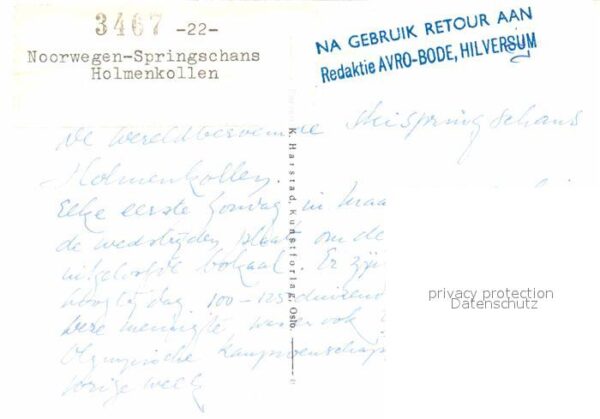 3467 -22-
Noorwegen-Springschans
Holmenkollen
NA GEBRUIK RETOUR AAN
Redaktie AVRO-BODE, HILVERSUM
K. Harstad, Kunstforlag, Oslo.
De wereldberoemde skispringschans
Holmenkollen.
Elke eerste Zondag in Maa
de wedstrijden plaats om de
uitgeloofde bokaal. Er zij
100-125duizend
menigte, ook
Olympische Kampioenschap
vorige week
privacy protection
Datenschutz